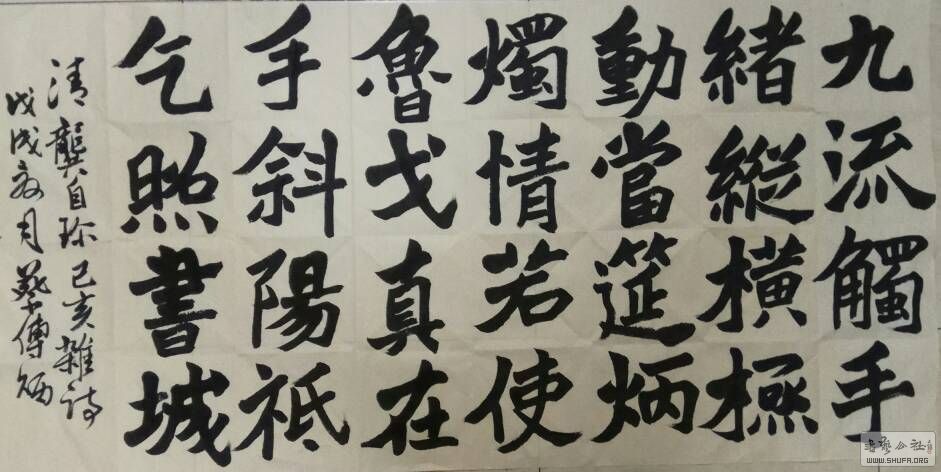 九流觸手
緒縱橫極
動當筵炳
燭情若使
魯戈真在
手斜陽祗
乞照書城
清龔自珍己亥雜詩
戊戌月蔡炳
書藝公社
WWW.SHUFA.ORG